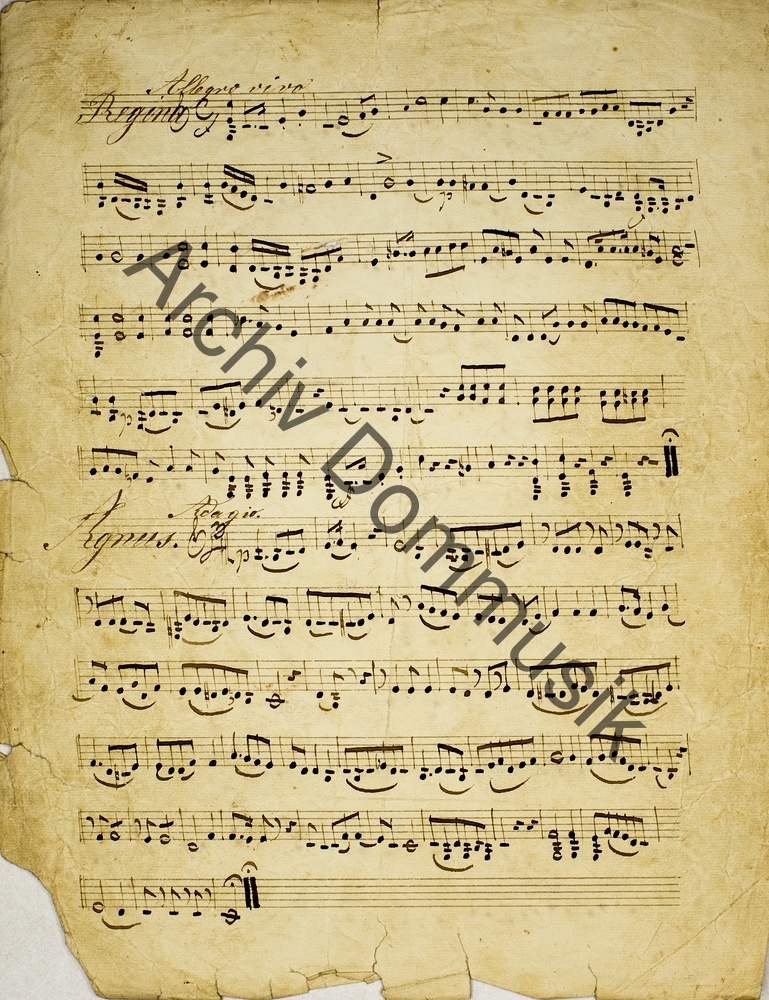 Allegro vivo
Regina
Adagio.
Agnus.
Archiv Dommusik